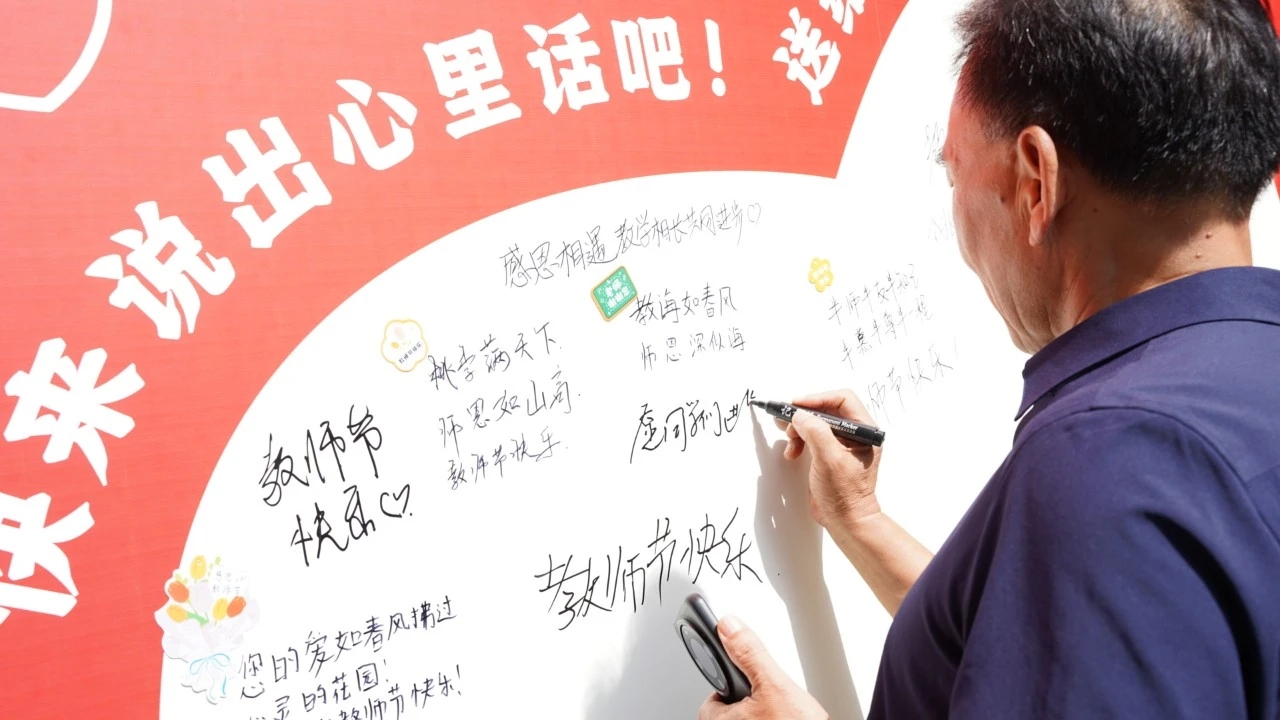 快来说出心里话吧！送
感恩相遇 教学相长共同进步♡
桃李满天下.
师恩如山高.
教师节快乐.
教海如春风
师恩深似海
师节快乐！
愿同学们进
教师节
快乐♡
教师节快乐
您的爱如春风拂过
心灵的花园！
教师节快乐！
Permanent Marker